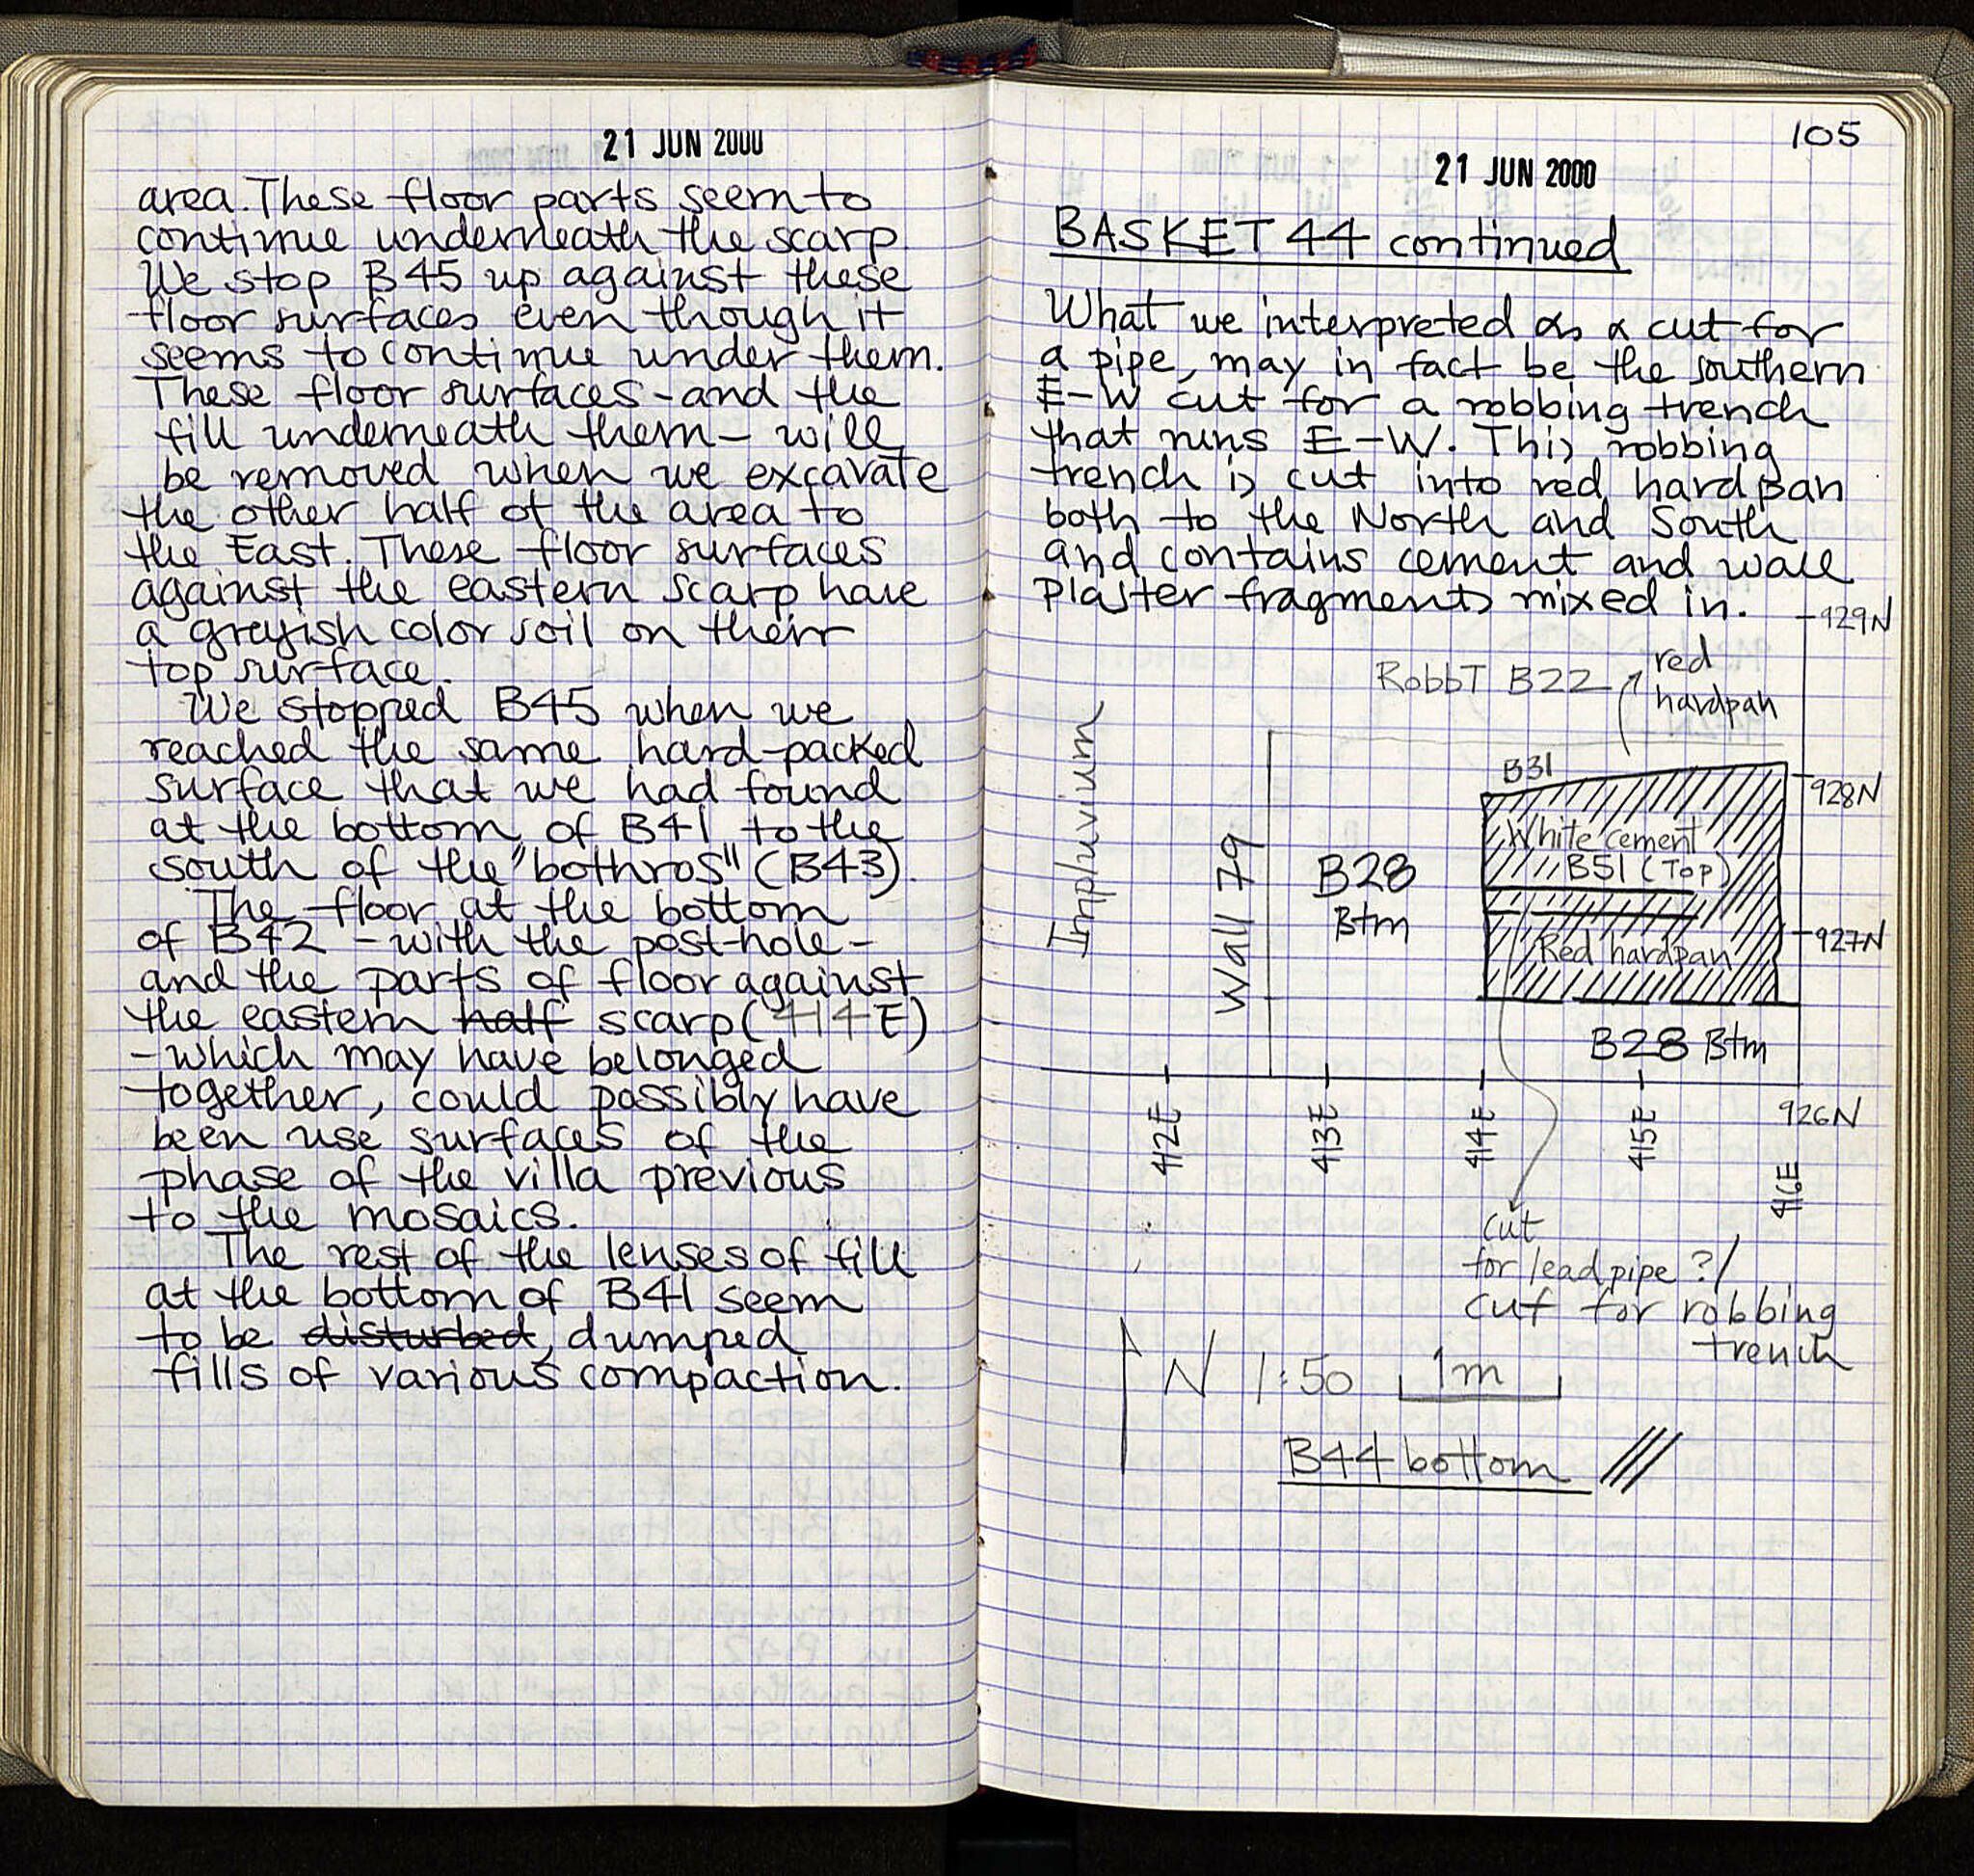 21 JUN 2000
area. These floor parts seem to
continue underneath the scarp
We stop B45 up against these
floor surfaces even though it
seems to continue under them.
These floor surfaces - and the
fill underneath them - will
be removed when we excavate
the other half of the area to
the East. These floor surfaces
against the eastern scarp have
a greyish color soil on their
top surface.
We stopped B45 when we
reached the same hard-packed
surface that we had found
at the bottom of B41 to the
south of the "bothros" (B43).
The floor at the bottom
of B42 - with the post-hole -
and the parts of floor against
the eastern half scarp (414E)
- which may have belonged
together, could possibly have
been use surfaces of the
phase of the villa previous
to the mosaics.
The rest of the lenses of fill
at the bottom of B41 seem
to be disturbed, dumped
fills of various compaction.
105
21 JUN 2000
BASKET 44 continued
What we interpreted as a cut for
a pipe, may in fact be the southern
E-W cut for a robbing trench
that runs E-W. This robbing
trench is cut into red hardpan
both to the North and South
and contains cement and wall
plaster fragments mixed in.
929N
RobbT B22
red
hardpan
B31
928N
White cement
B51 (Top)
Impluvium
Wall 79
B28
Btm
927N
Red hardpan
B28 Btm
926N
412E
413E
414E
415E
416E
cut
for lead pipe ?/
cut for robbing
trench
N 1:50 1m
B44 bottom